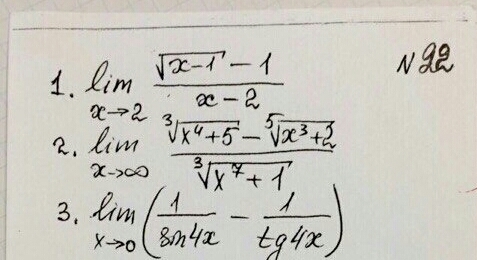 N 22
1. lim_{x→2} (√(x-1) - 1)/(x - 2)
2. lim_{x→∞} (∛(x⁴+5) - ⁵√(x³+2))/∛(x⁷+1)
3. lim_{x→0} (1/sin4x - 1/tg4x)